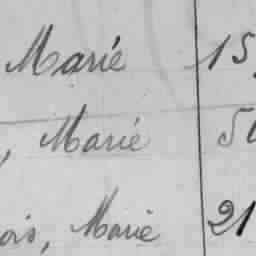 Marié 15
, Marié 50
ois, Marie 21